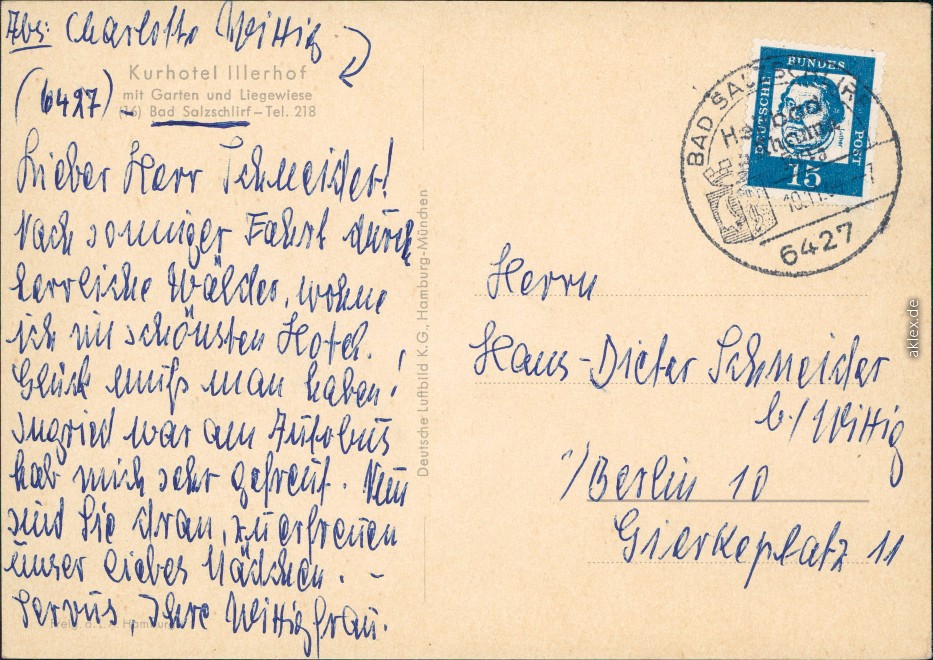 Abs: Charlotte Wittig
Kurhotel Illerhof
mit Garten und Liegewiese
(16) Bad Salzschlirf – Tel. 218
(6427)
Lieber Herr Schneider!
Nach sonniger Fahrt durch
herrliche Wälder, wohne
ich im schönsten Hotel.
Glück muß man haben!
Ingried war am Autobus
hab mich sehr gefreut. Nun
sind Sie dran, zu erfreuen
unser liebes Mädchen. –
Servus, Ihre Wittigfrau.
Freig. d. L. A. Hamburg
Deutsche Luftbild K.G., Hamburg-München
DEUTSCHE BUNDES POST
15
BAD SALZSCHLIRF
Heilbad
10.11.
6427
Herrn
Hans-Dieter Schneider
b/Wittig
1/Berlin 10
Gierkeplatz 11
aklex.de